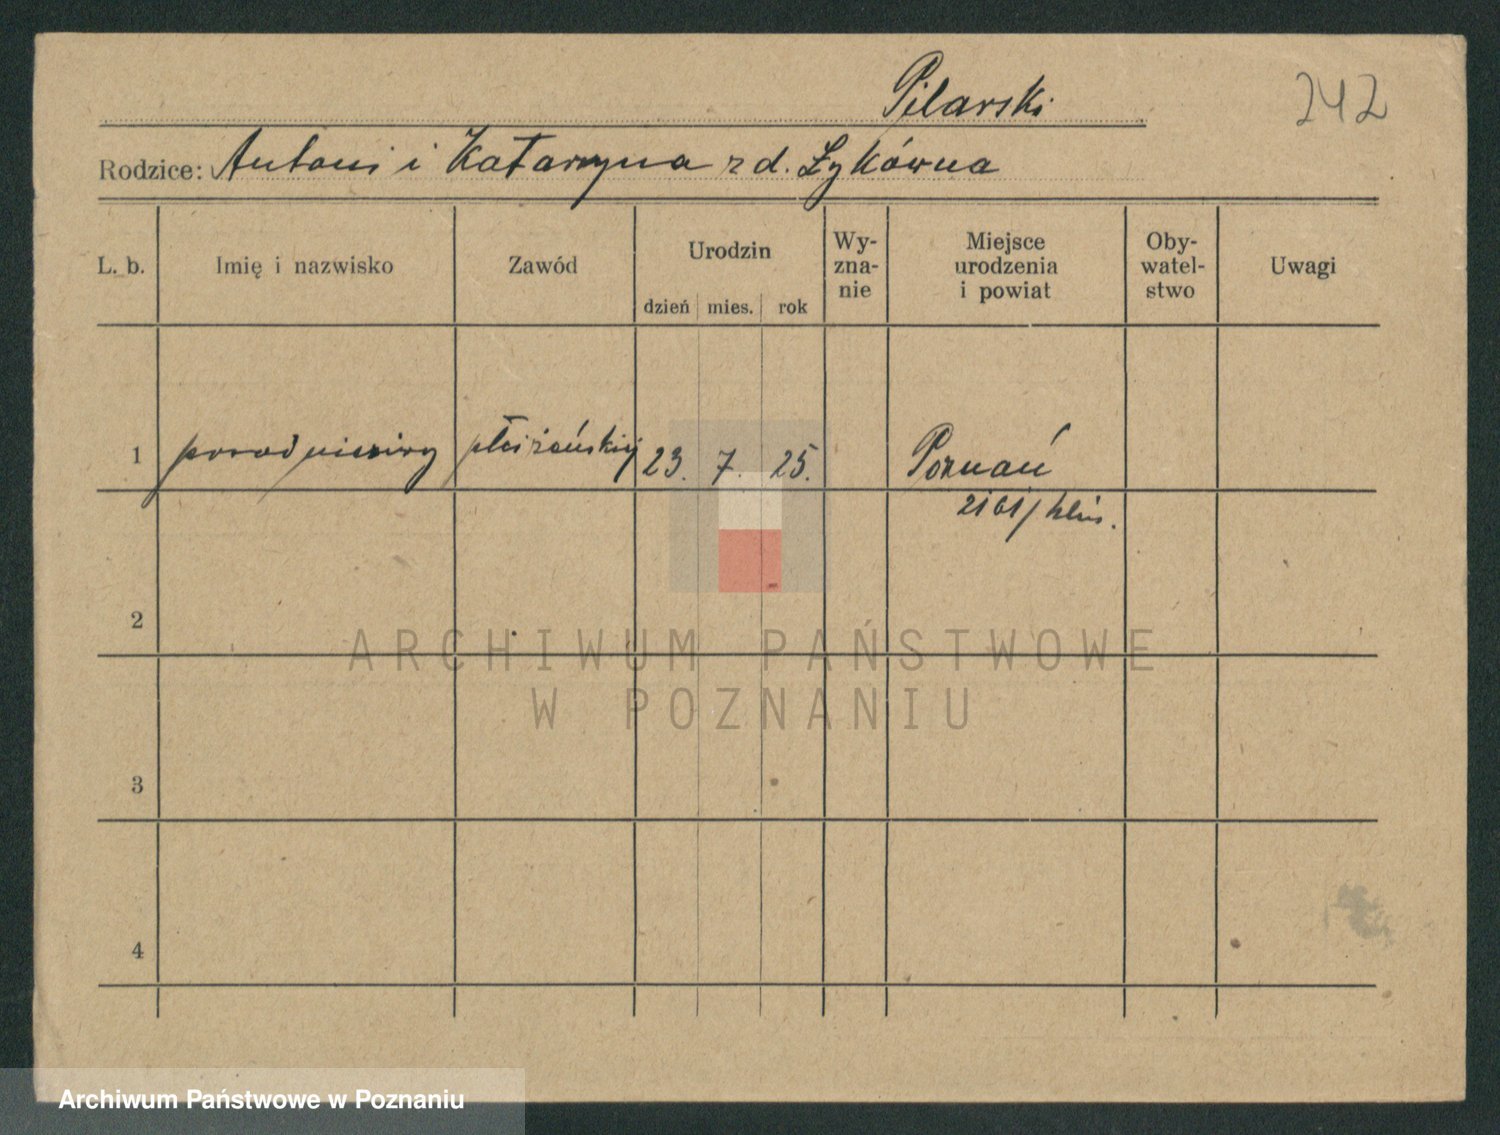 Pilarski
242
Rodzice: Antoni i Katarzyna z d. Łykówna
L. b. Imię i nazwisko Zawód Urodzin dzień mies. rok Wyznanie Miejsce urodzenia i powiat Obywatelstwo Uwagi
1 23. 7. 25. Poznań
2161/
2
ARCHIWUM PAŃSTWOWE
W POZNANIU
3
4
Archiwum Państwowe w Poznaniu